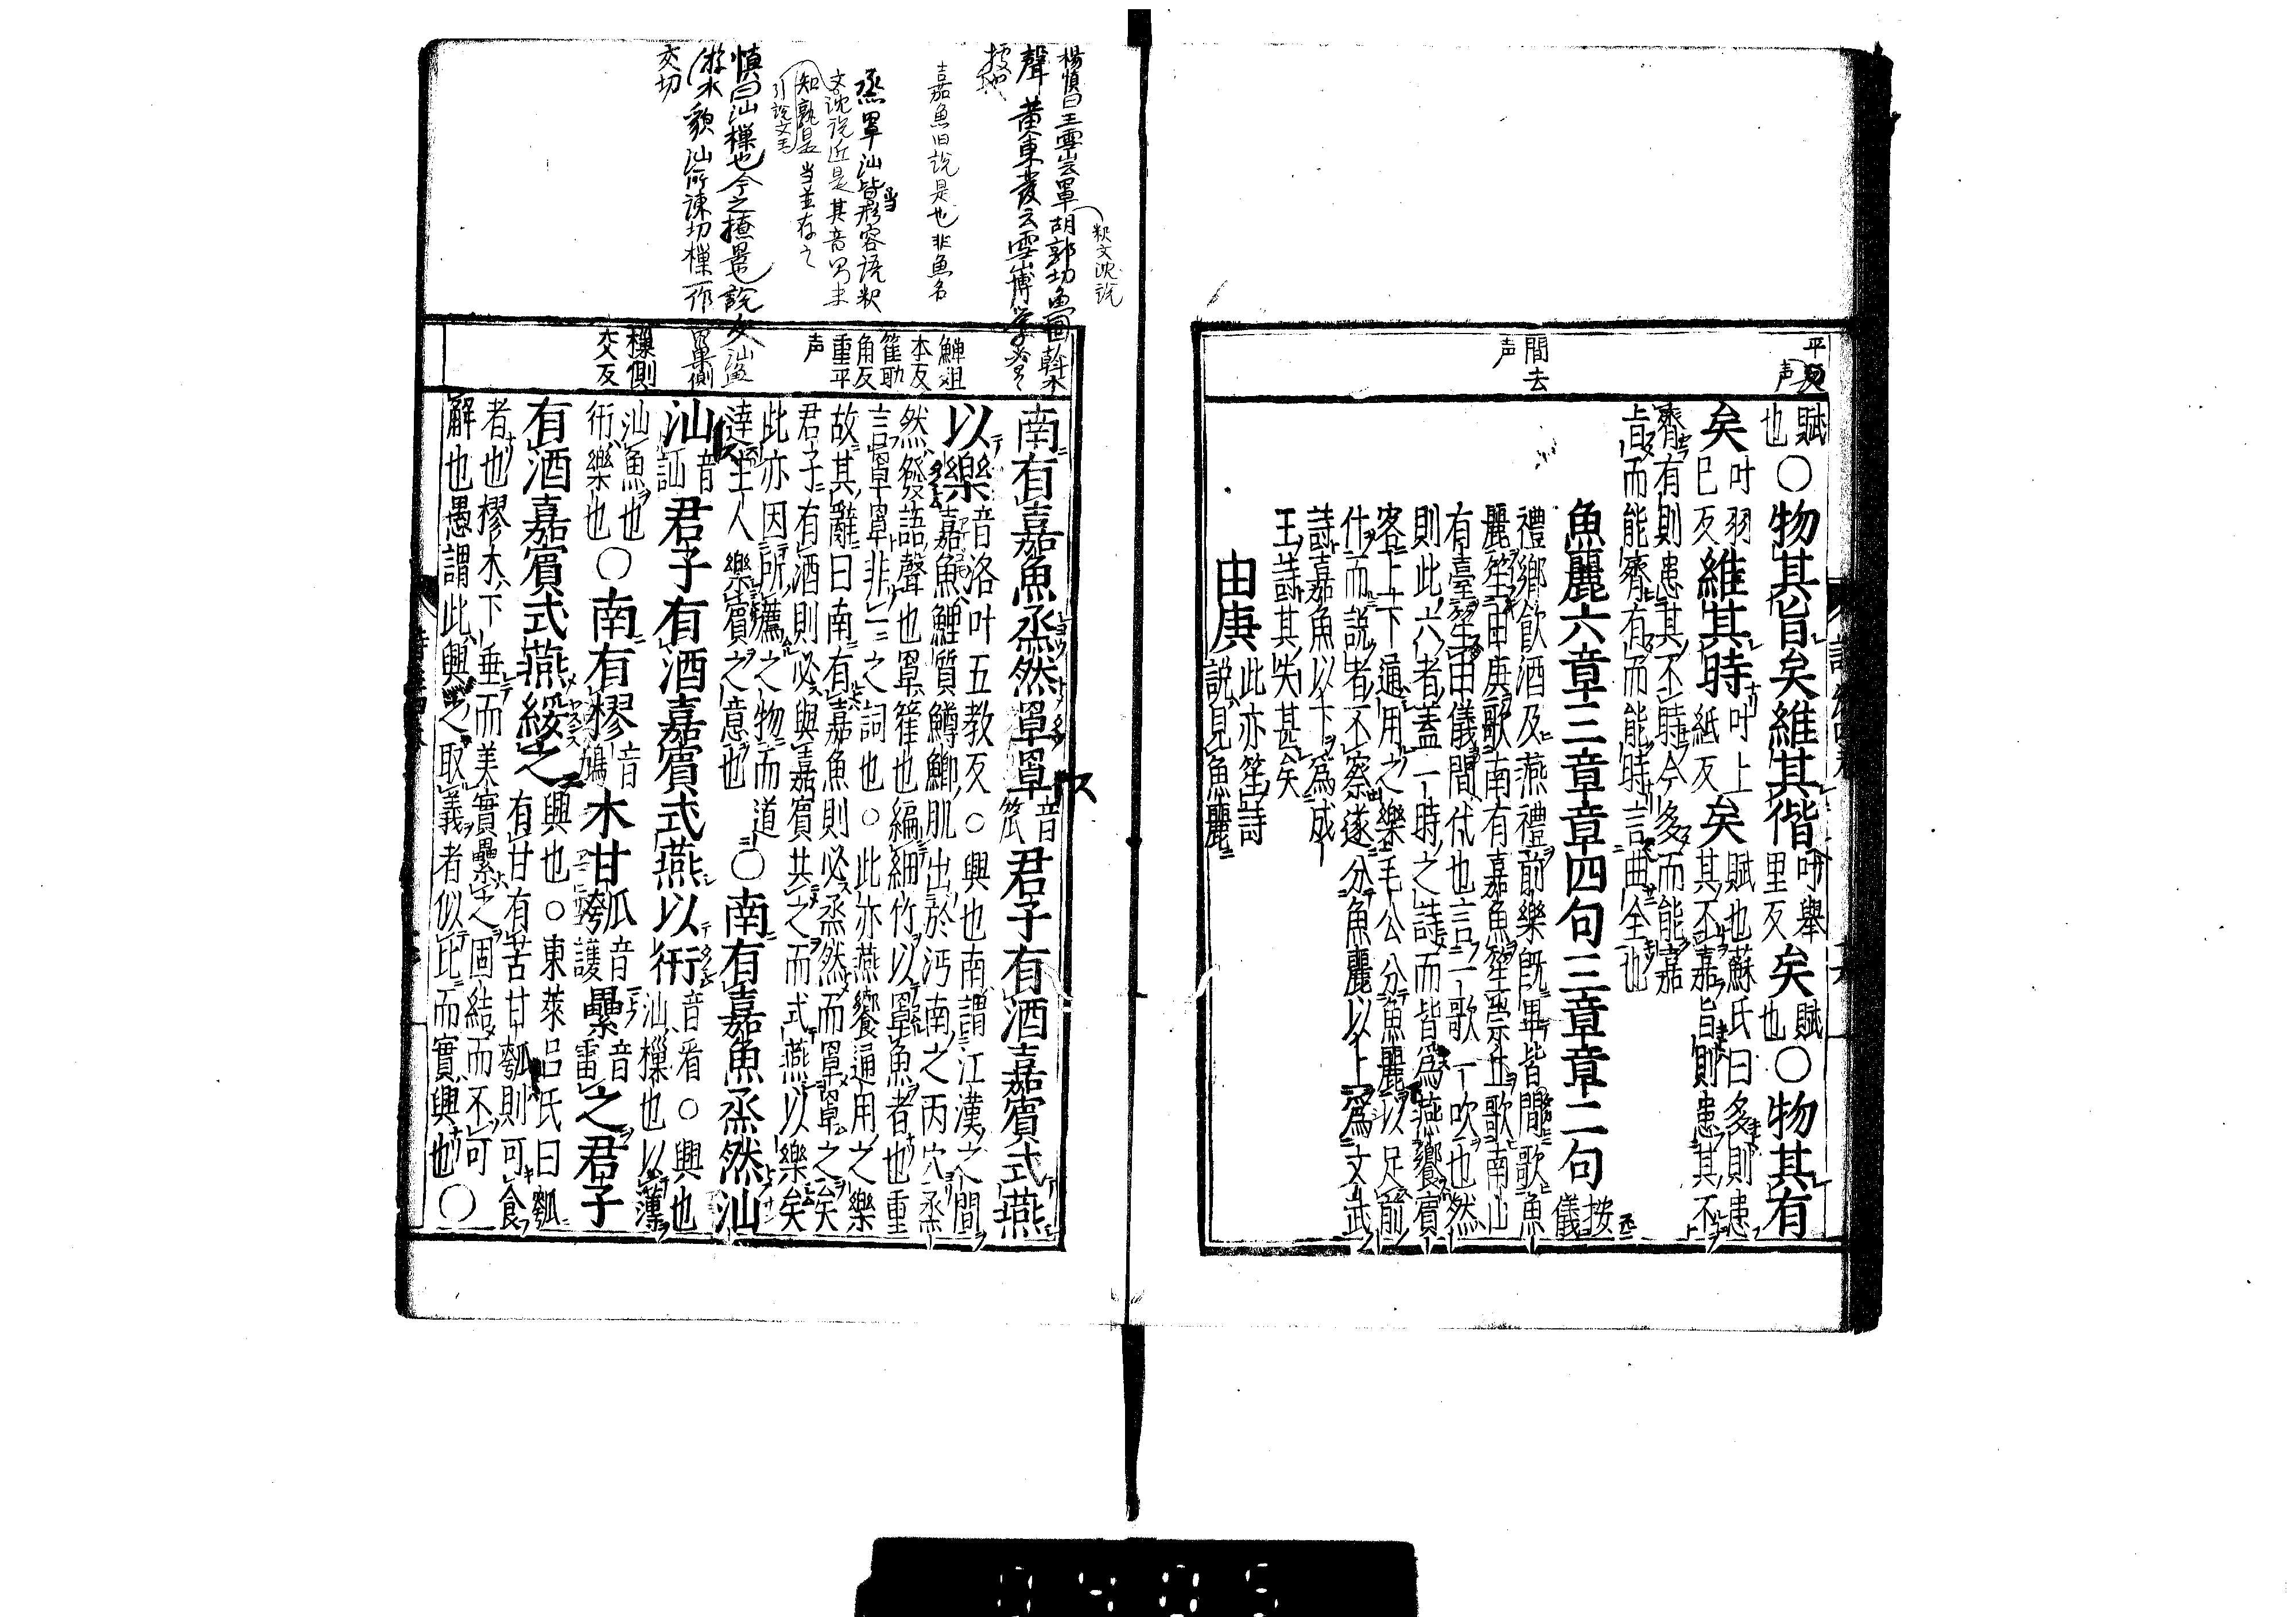 賦也○物其旨矣維其偕叶舉里反矣賦也○物其有
矣叶羽已反維其時叶上紙反矣賦也蘇氏曰多則患其不嘉旨則患其不
齊有則患其不時今多而能嘉
旨而能齊有而能時言曲全也
魚麗六章三章章四句三章章二句按儀
禮鄉飲酒及燕禮前樂既畢皆間歌魚
麗笙由庚歌南有嘉魚笙崇丘歌南山
有臺笙由儀間代也言一歌一吹也然
則此六者蓋一時之詩而皆爲燕饗賓
客上下通用之樂毛公分魚麗以足前
什而說者不察遂分魚麗以上爲文武
詩嘉魚以下爲成
王詩其失甚矣
由庚此亦笙詩說見魚麗
間去声
南有嘉魚烝然罩罩音笊君子有酒嘉賓式燕
以樂音洛叶五教反○興也南謂江漢之間
嘉魚鯉質鱒鯽肌出於沔南之丙穴烝
然發語聲也罩篧也編細竹以罩魚者也重
言罩罩非一之詞也○此亦燕饗通用之樂
故其辭曰南有嘉魚則必烝然而罩罩之矣
君子有酒則必與嘉賓共之而式燕以樂矣
此亦因所薦之物而道
達主人樂賓之意也○南有嘉魚烝然汕
汕音訕君子有酒嘉賓式燕以衎音看○興也
汕樔也以薄汕魚也
衎樂也○南有樛音鳩木甘瓠音護纍音雷之君子
有酒嘉賓式燕綏之興也○東萊呂氏曰瓠
有甘有苦甘瓠則可食
者也樛木下垂而美實纍之固結而不可
解也愚謂此興之取義者似比而實興也○
鱓祖本反
篧助角反
重平声
樔側交反
楊慎曰王雪山云罩胡郭切
黄東發云雪山博学
釈文沈説
嘉魚旧説是也非魚名
烝罩汕皆当形容语釈
文沈説近是其音
当並存之
引説文
慎曰汕樔也今之撩罟也説文汕魚
游水貌汕所諫切樔一作罺側
交切